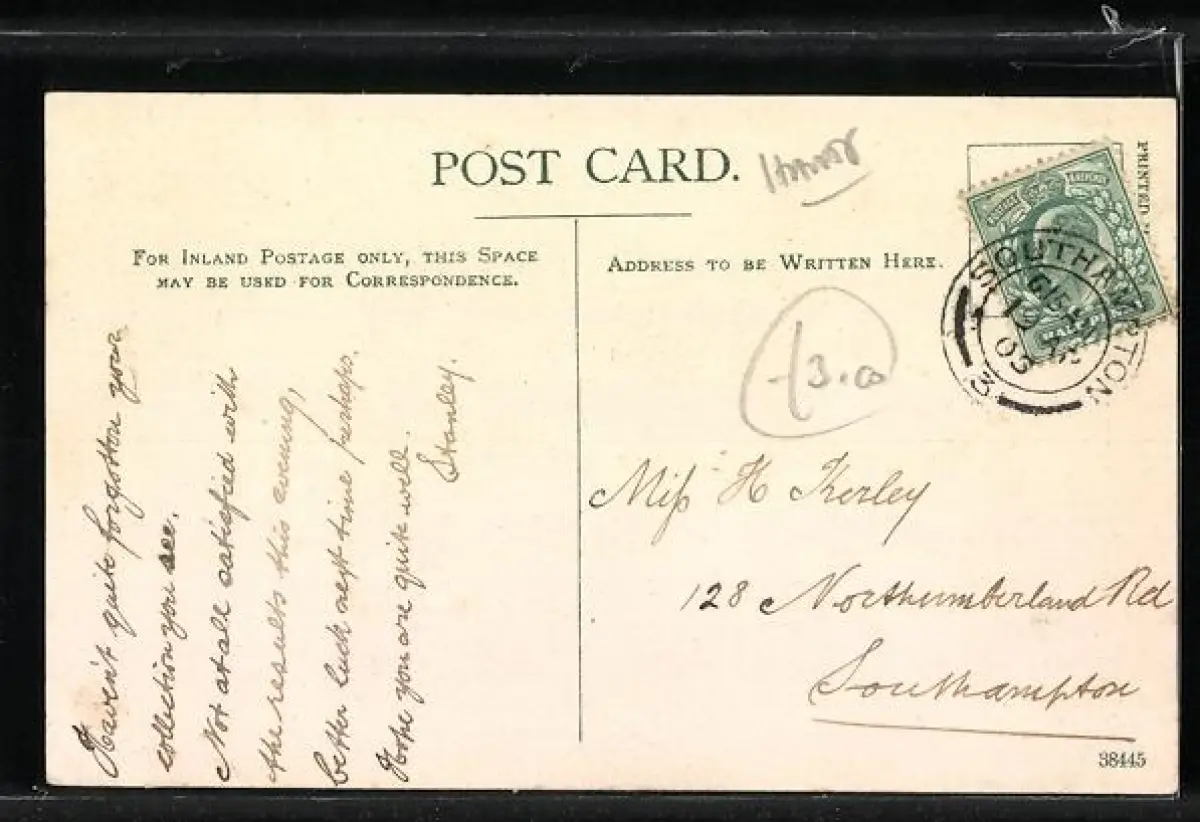 POST CARD.
PRINTED
FOR INLAND POSTAGE ONLY, THIS SPACE
MAY BE USED FOR CORRESPONDENCE.
ADDRESS TO BE WRITTEN HERE.
Haven't quite forgotten your
collection you see.
Not at all satisfied with
the results this evening,
better luck next time perhaps.
Hope you are quite well.
Stanley.
SOUTHAMPTON
3
£3.00
Miss H Kerley
128 Northumberland Rd
Southampton
38445